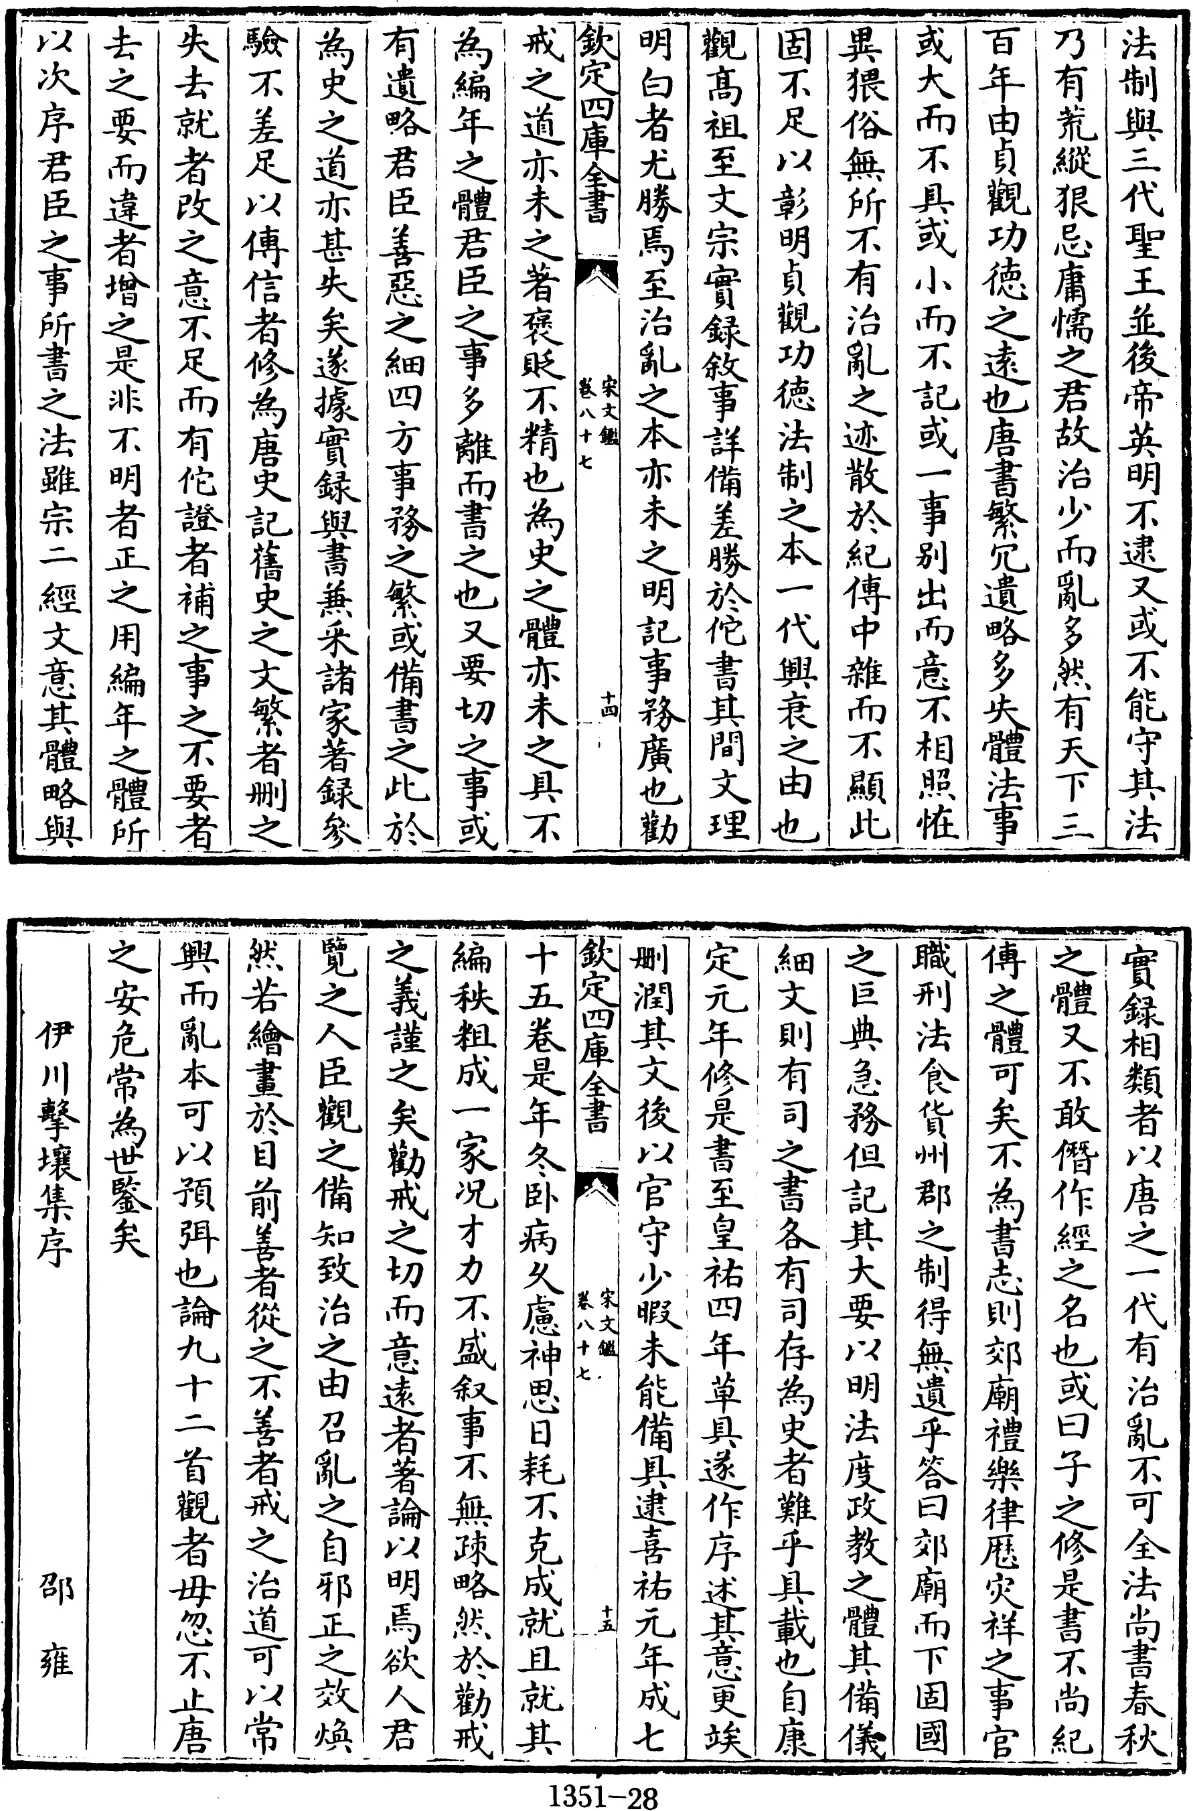 法制與三代聖王並後帝英明不逮又或不能守其法
乃有荒縱狠忌庸懦之君故治少而亂多然有天下三
百年由貞觀功德之遠也唐書繁冗遺略多失體法事
或大而不具或小而不記或一事别出而意不相照恠
異猥俗無所不有治亂之迹散於紀傳中雜而不顯此
固不足以彰明貞觀功德法制之本一代興衰之由也
觀髙祖至文宗實録敘事詳備差勝於佗書其間文理
明白者尤勝焉至治亂之本亦未之明記事務廣也勸
欽定四庫全書
宋文鑑
卷八十七
十四
戒之道亦未之著褒貶不精也為史之體亦未之具不
為編年之體君臣之事多離而書之也又要切之事或
有遺略君臣善惡之細四方事務之繁或備書之此於
為史之道亦甚失矣遂據實録與書兼采諸家著録參
驗不差足以傳信者修為唐史記舊史之文繁者刪之
失去就者改之意不足而有佗證者補之事之不要者
去之要而違者增之是非不明者正之用編年之體所
以次序君臣之事所書之法雖宗二經文意其體略與
實録相類者以唐之一代有治亂不可全法尚書春秋
之體又不敢僭作經之名也或曰子之修是書不尚紀
傳之體可矣不為書志則郊廟禮樂律厯灾祥之事官
職刑法食貨州郡之制得無遺乎答曰郊廟而下固國
之巨典急務但記其大要以明法度政教之體其備儀
細文則有司之書各有司存為史者難乎具載也自康
定元年修是書至皇祐四年草具遂作序述其意更竢
刪潤其文後以官守少暇未能備具逮喜祐元年成七
欽定四庫全書
宋文鑑
卷八十七
十五
十五卷是年冬卧病久慮神思日耗不克成就且就其
編秩粗成一家况才力不盛叙事不無疎略然於勸戒
之義謹之矣勸戒之切而意遠者著論以明焉欲人君
覽之人臣觀之備知致治之由召亂之自邪正之效煥
然若繪畫於目前善者從之不善者戒之治道可以常
興而亂本可以預弭也論九十二首觀者毋忽不止唐
之安危常為世鍳矣
伊川擊壤集序 邵雍
1351-28